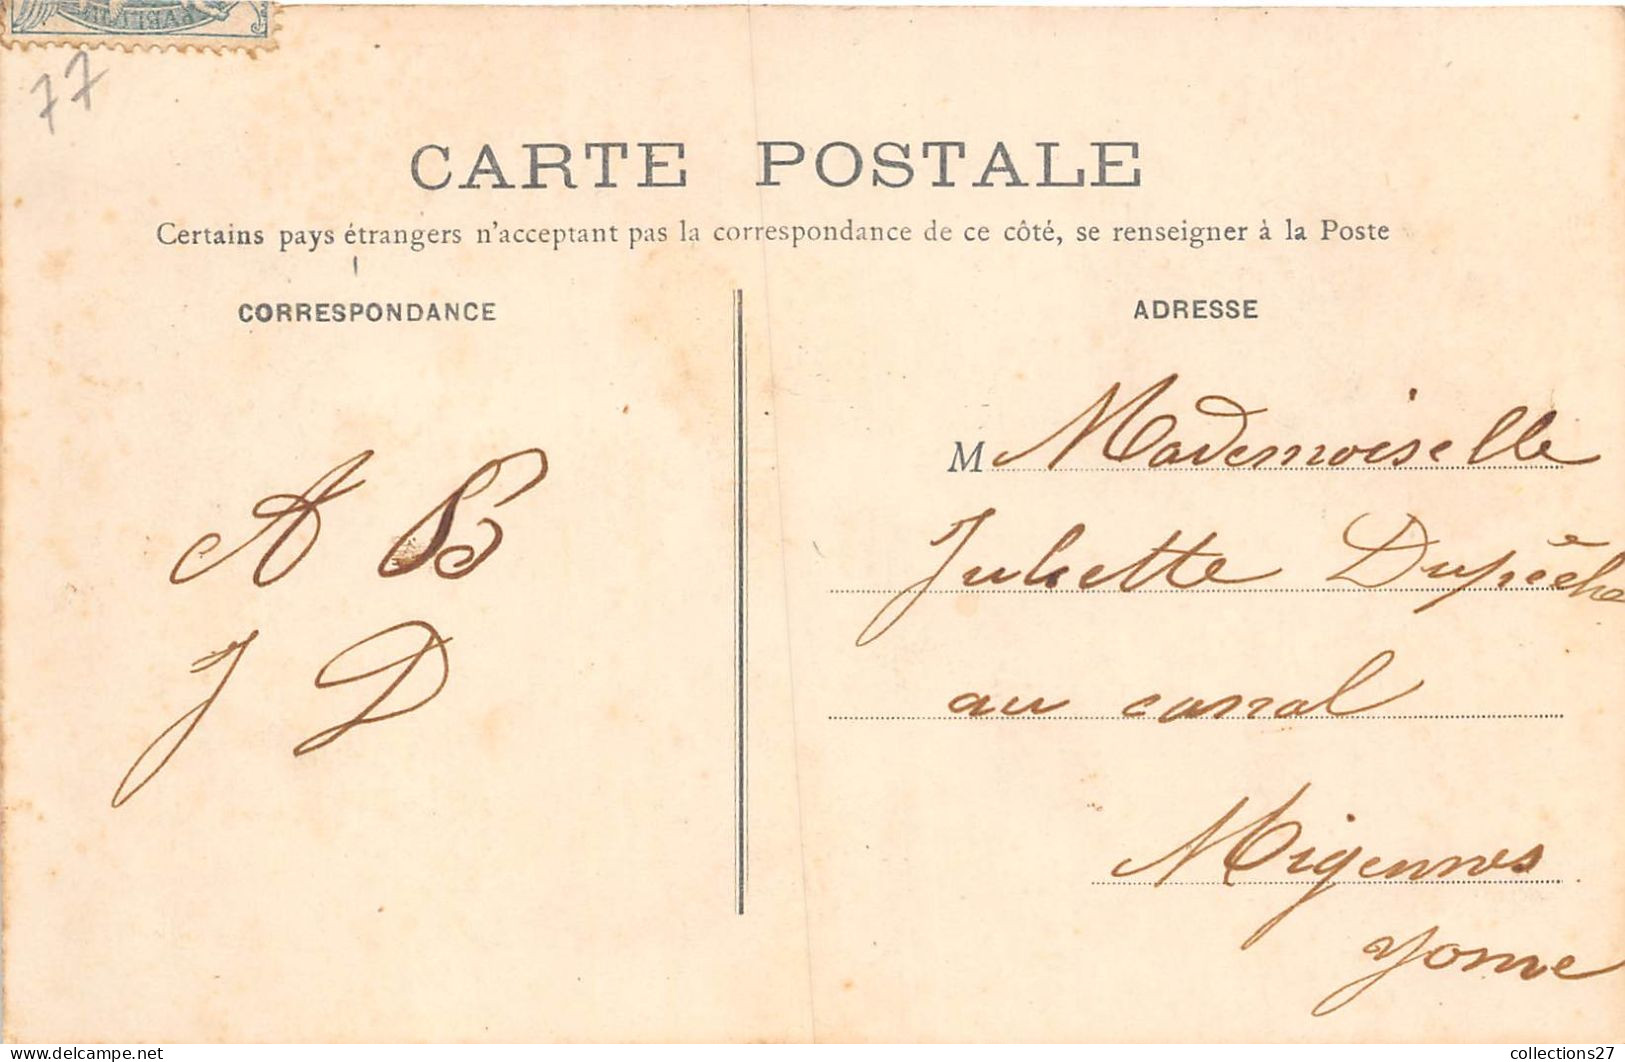 77
CARTE POSTALE
Certains pays étrangers n'acceptant pas la correspondance de ce côté, se renseigner à la Poste
CORRESPONDANCE
A B
J D
ADRESSE
M Mademoiselle
Juliette Dupêche
au canal
Migennes
Yonne
collections27